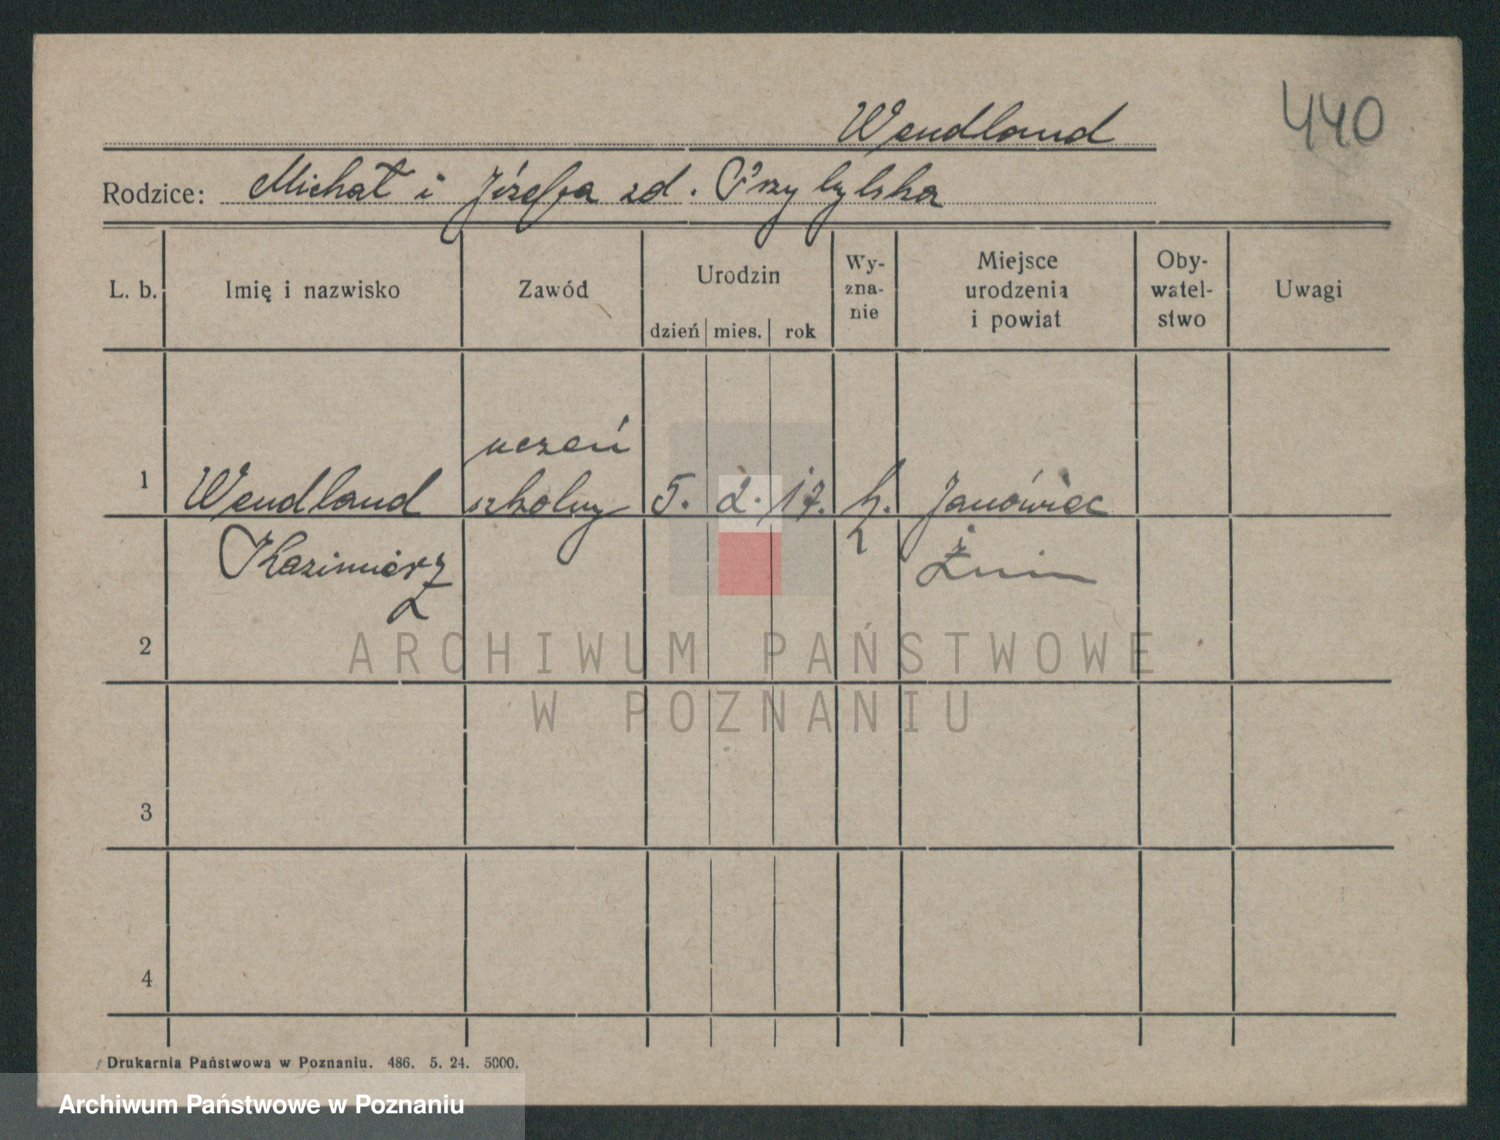 440
Wendland
Rodzice: Michał i Józefa zd. Przybylska
L. b. Imię i nazwisko Zawód Urodzin dzień mies. rok Wy-zna-nie Miejsce urodzenia i powiat Oby-watel-stwo Uwagi
uczeń
1 Wendland szkolny 5. 2. 17. k. Janówiec
Kazimierz Żnin
2
ARCHIWUM PAŃSTWOWE
W POZNANIU
3
4
Drukarnia Państwowa w Poznaniu. 486. 5. 24. 5000.
Archiwum Państwowe w Poznaniu